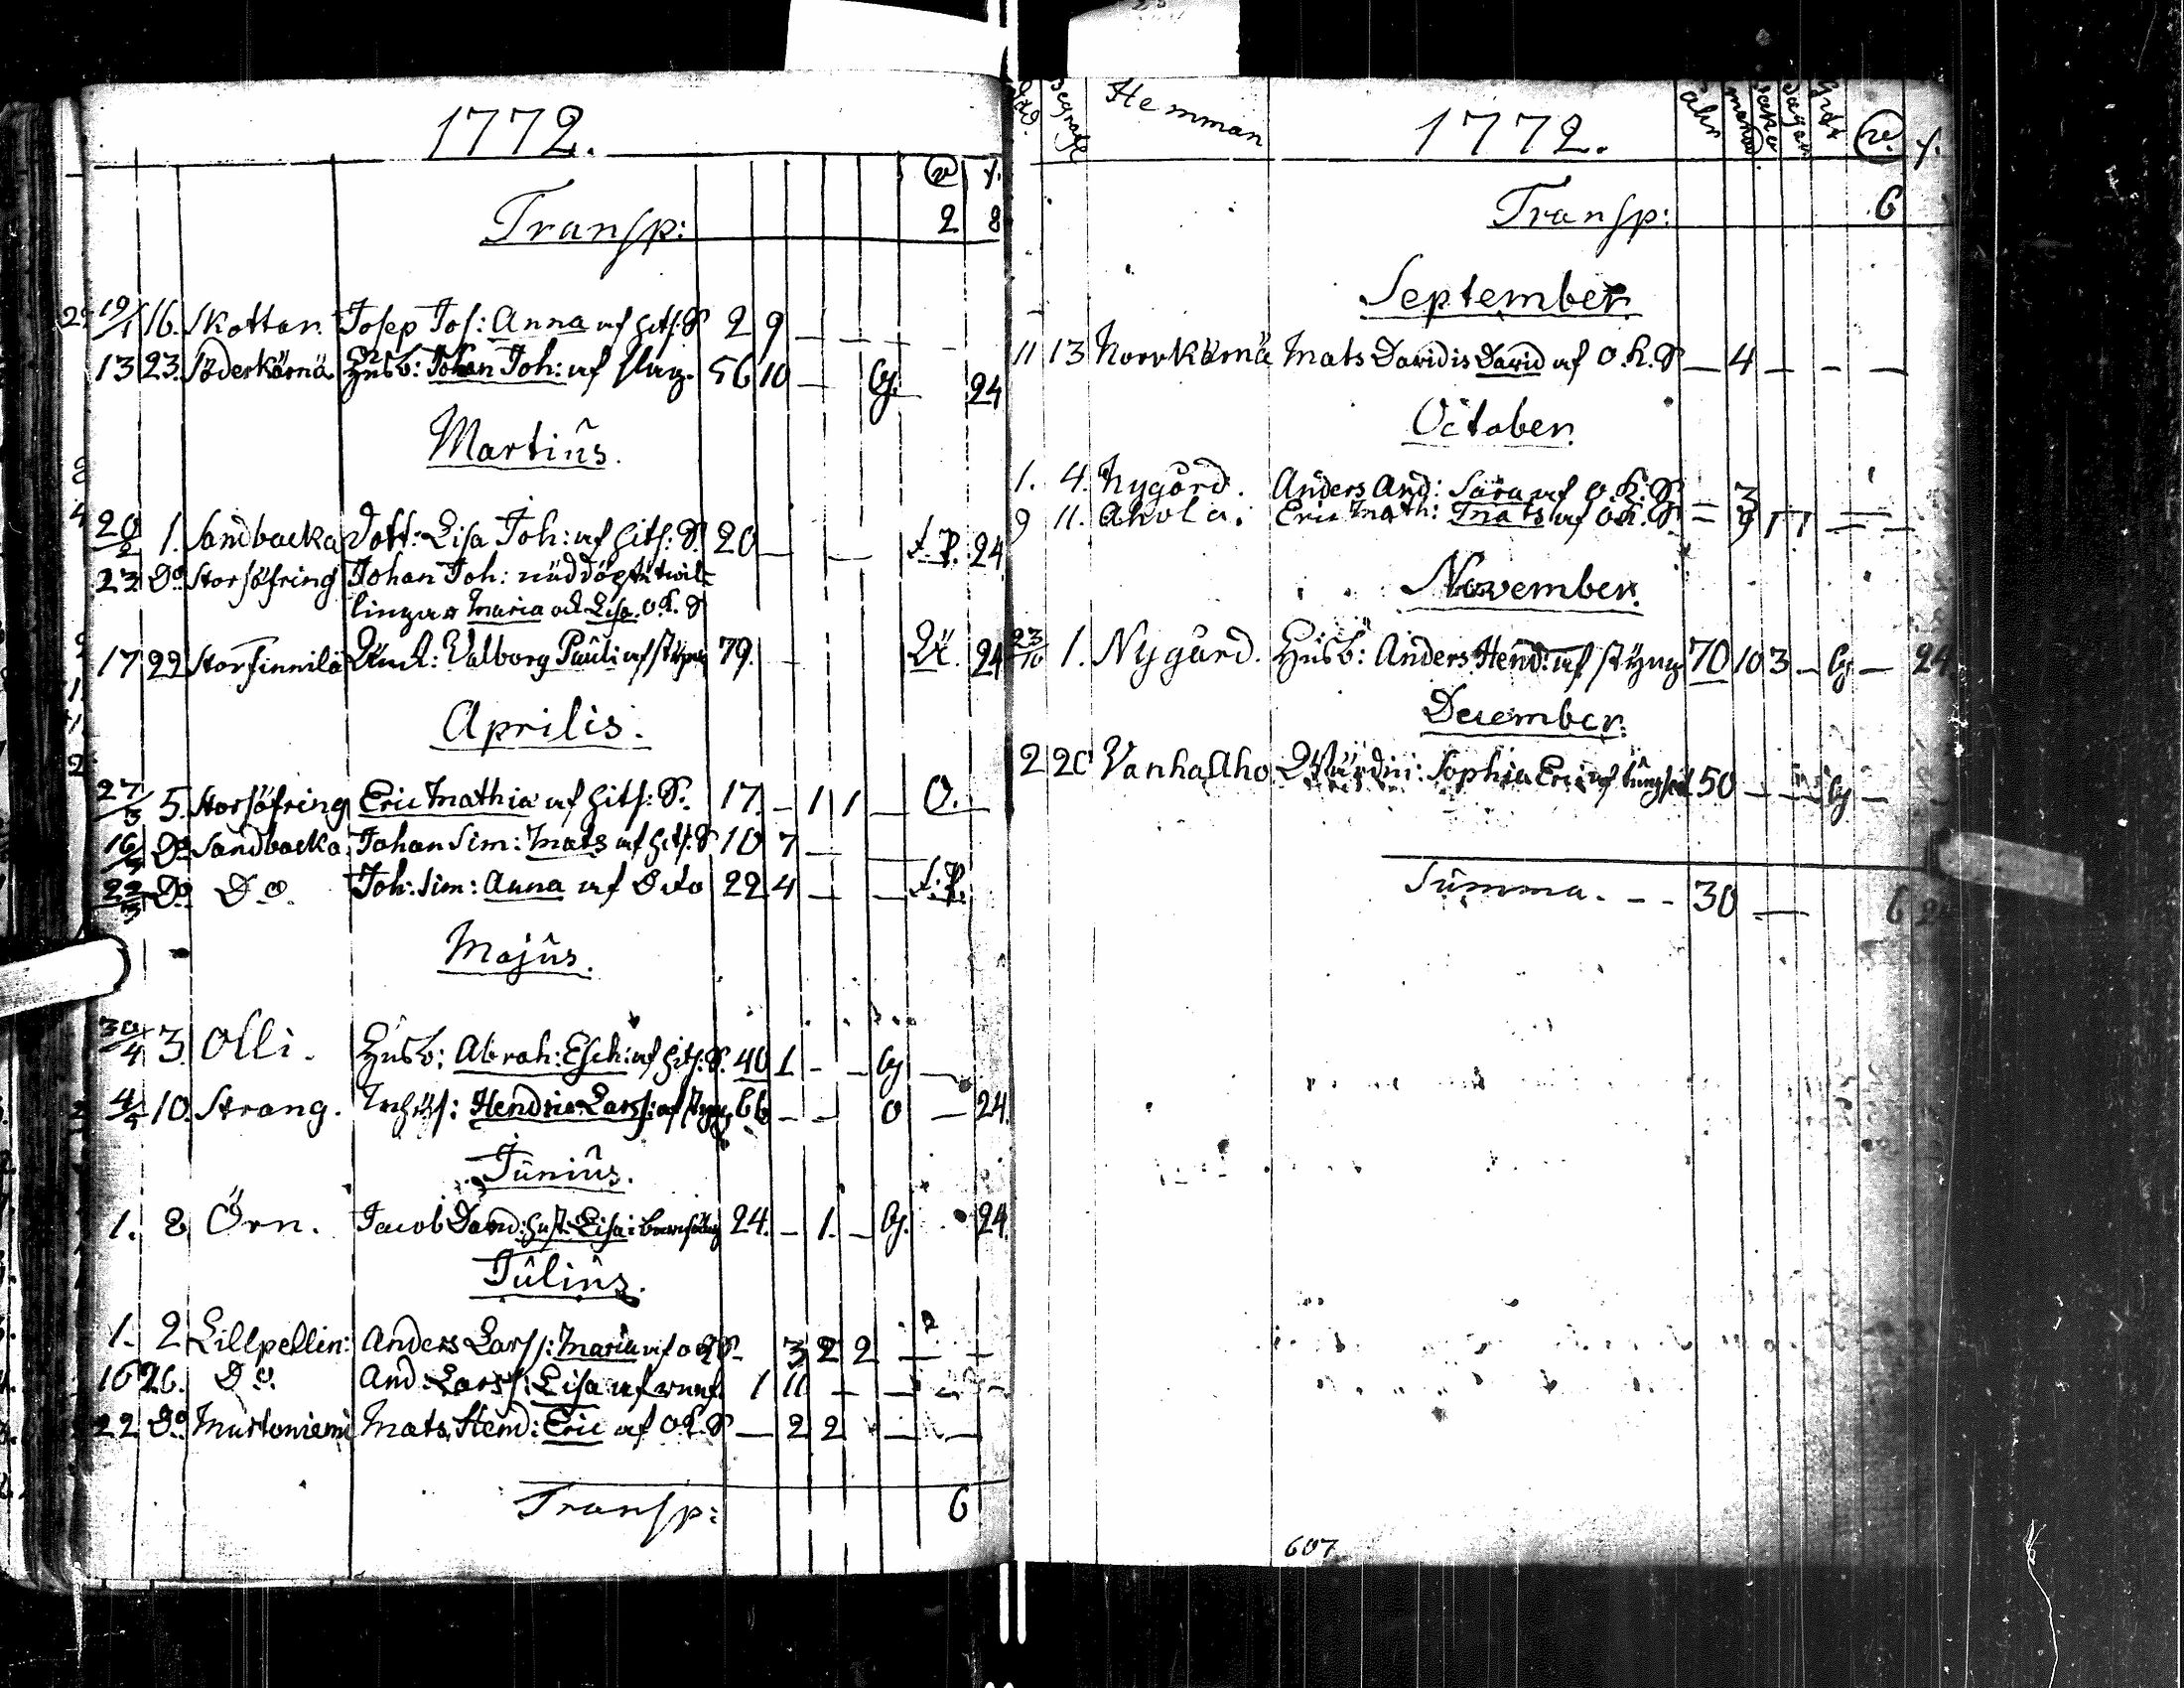 1772.
Transp: 2 8
19/1 16. Skottar. Josep Jos: Anna af hits: S 2 9 — — — —
13 23. Söderkärnä Husb: Johan Joh: af slag. 56 10 — 24
Martius.
20/2 1. Sandbacka Dott: Lisa Joh: af hits: S. 20 — — f.P. 24
23 Do Storsöfring Johan Joh: nöddöpte twil=
lingar Maria och Lisa. O.K. S
17 22 Storfinnilä Valborg Pauli af 79. — 24
Aprilis.
27/3 5. Storsöfring Eric Mathia af hits: S. 17. — 1 1 — O. —
16/3 Do Sandbacka Johan Sim: Mats af hits: S 10 7 —
22/3 Do Do. Joh: Sim: Anna af Dito 22 4 — — f.P.
Majus.
30/4 3. Olli. Husb: Abrah: Esch: af hits: S. 40 1 — — —
4/5 10. Strang. Hendric Larss: af 66 — — O — 24.
Junius.
1. 8 Örn. Jacob David: hust. Lisa i 24. — 1. — 24.
Julius.
1. 2 Lillpellin: Anders Larss: Maria af O.K.S. 3 2 2 — —
16 26. Do. And: Larss: Lisa af 1 11 — — — —
22 Do Murtoniemi Mats Hend: Eric af O.K. S — 2 2 — —
Transp: 6
Död. Begrafn Hemman 1772. åhr
Transp: 6
September.
11 13 Norrkärnä Mats Davidis David af O.K. S — 4 — — —
October.
1. 4. Nygård. Anders And: Sara af O.K. S — 3
9 11. Ahola. Eric Math: Mats af O.K. S — 9
November.
23/10 1. Nygård. Husb: Anders Hend: af styng 70 10 3 — — 24
December.
2 20 Vanha Aho Sophia Eric: af 50 — — —
Summa. - - 30 — 6
607